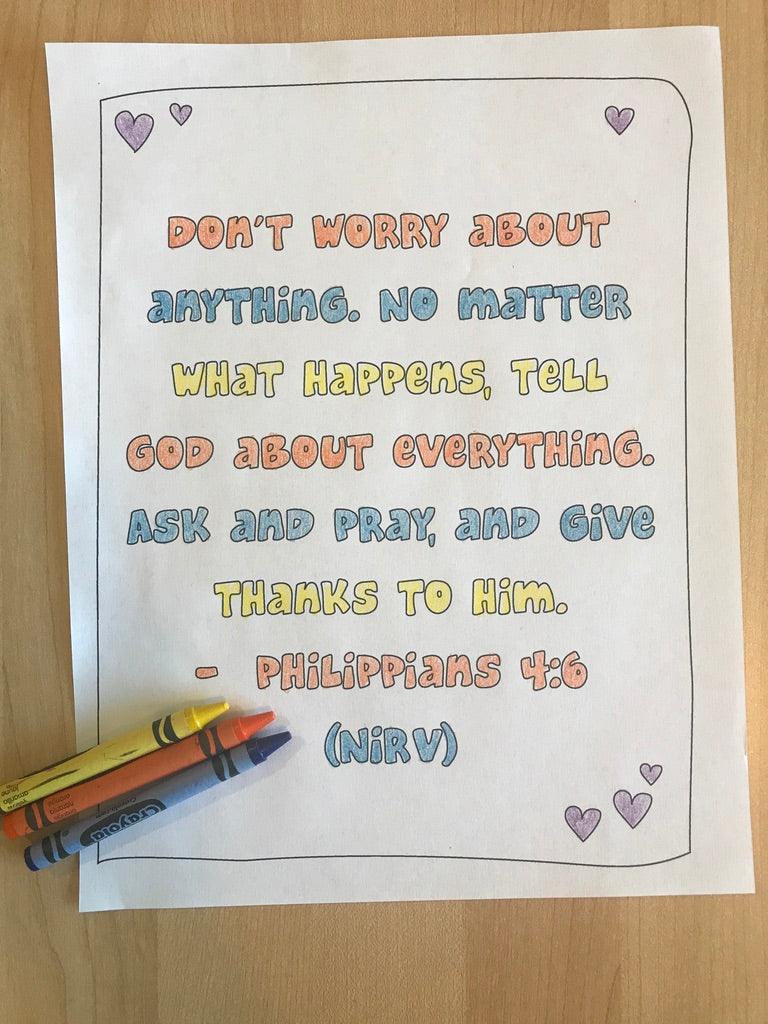 DON'T WORRY aBOUT
anYTHinG. NO maTTER
WHaT HaPPens, TeLL
GOD aBOUT eVeRYTHinG.
ASK anD PRaY, anD GiVe
THanKS TO Him.
- PHiLiPPians 4:6
(NiRV)
amarillo
naranja
orange
Crayola